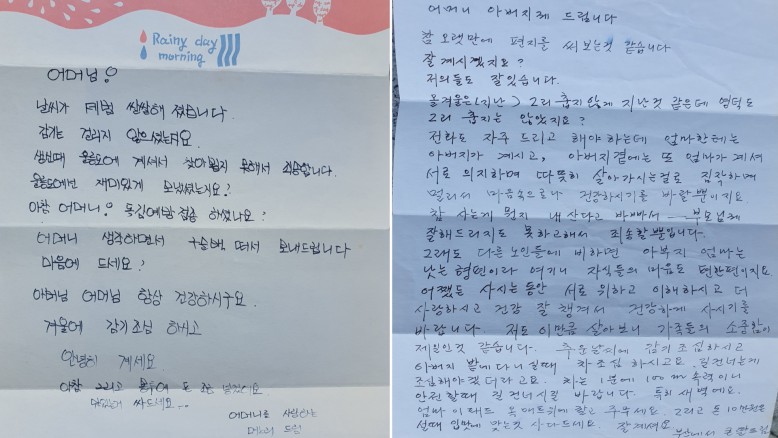 Rainy day
morning
어머님!
날씨가 제법 쌀쌀해 졌습니다
감기는 걸리지 않으셨는지요
생신때 울릉도에 계셔서 찾아뵙지 못해서 죄송합니다.
울릉도에선 재미있게 보내셨는지요?
아참 어머니! 독감예방접종 하셨나요?
어머니 생각하면서 떠서 보내드립니다
마음에 드세요?
아버님 어머님 항상 건강하시구요.
겨울에 감기조심 하시고
안녕히 계세요
아참 그리고 돈 넣었어요.
싸드세요..
어머니를 사랑하는
드림
어머니 아버지께 드립니다
참 오랫만에 편지를 써 보는것 같습니다
잘계시겠지요?
저희들도 잘있습니다.
올겨울은(지난) 그리 춥지않게 지난것 같은데 영덕도
그리 춥지는 않았지요?
전화도 자주 드리고 해야 하는데 엄마한테는
아버지가 계시고, 아버지곁에는 또 엄마가 계셔
서로 의지하며 따뜻히 살아가시는걸로 짐작하며
멀리서 마음속으로나 건강하시기를 바랄 뿐이지요.
참 사는게 뭔지 내 산다고 바빠서 부모님께
잘해드리지도 못하고해서 죄송할뿐입니다.
그래도 다른 노인들에 비하면 아부지 엄마는
낫는 형편이라 여기니 자식들의 마음도 편한편이지요.
어쨌든 사시는 동안 서로 위하고 이해하시고 더
사랑하시고 건강 잘 챙겨서 건강하게 사시기를
바랍니다. 저도 이만큼 살아보니 가족들의 소중함이
제일인것 같습니다. 추운날씨에 감기 조심하시고
아버지 밭에 다니실때 차 조심 하시고요. 길건너는게
조심해야겠더라고요. 차는 1분에 100m 속력이니
안전할때 길 건너시길 바랍니다. 특히 새벽에요.
엄마 이 해드 목 하고 주무세요. 그리고 돈 10만원은
설때 입맛에 맞는것 사다드세요. 잘계세요.
부산에서 큰딸드림